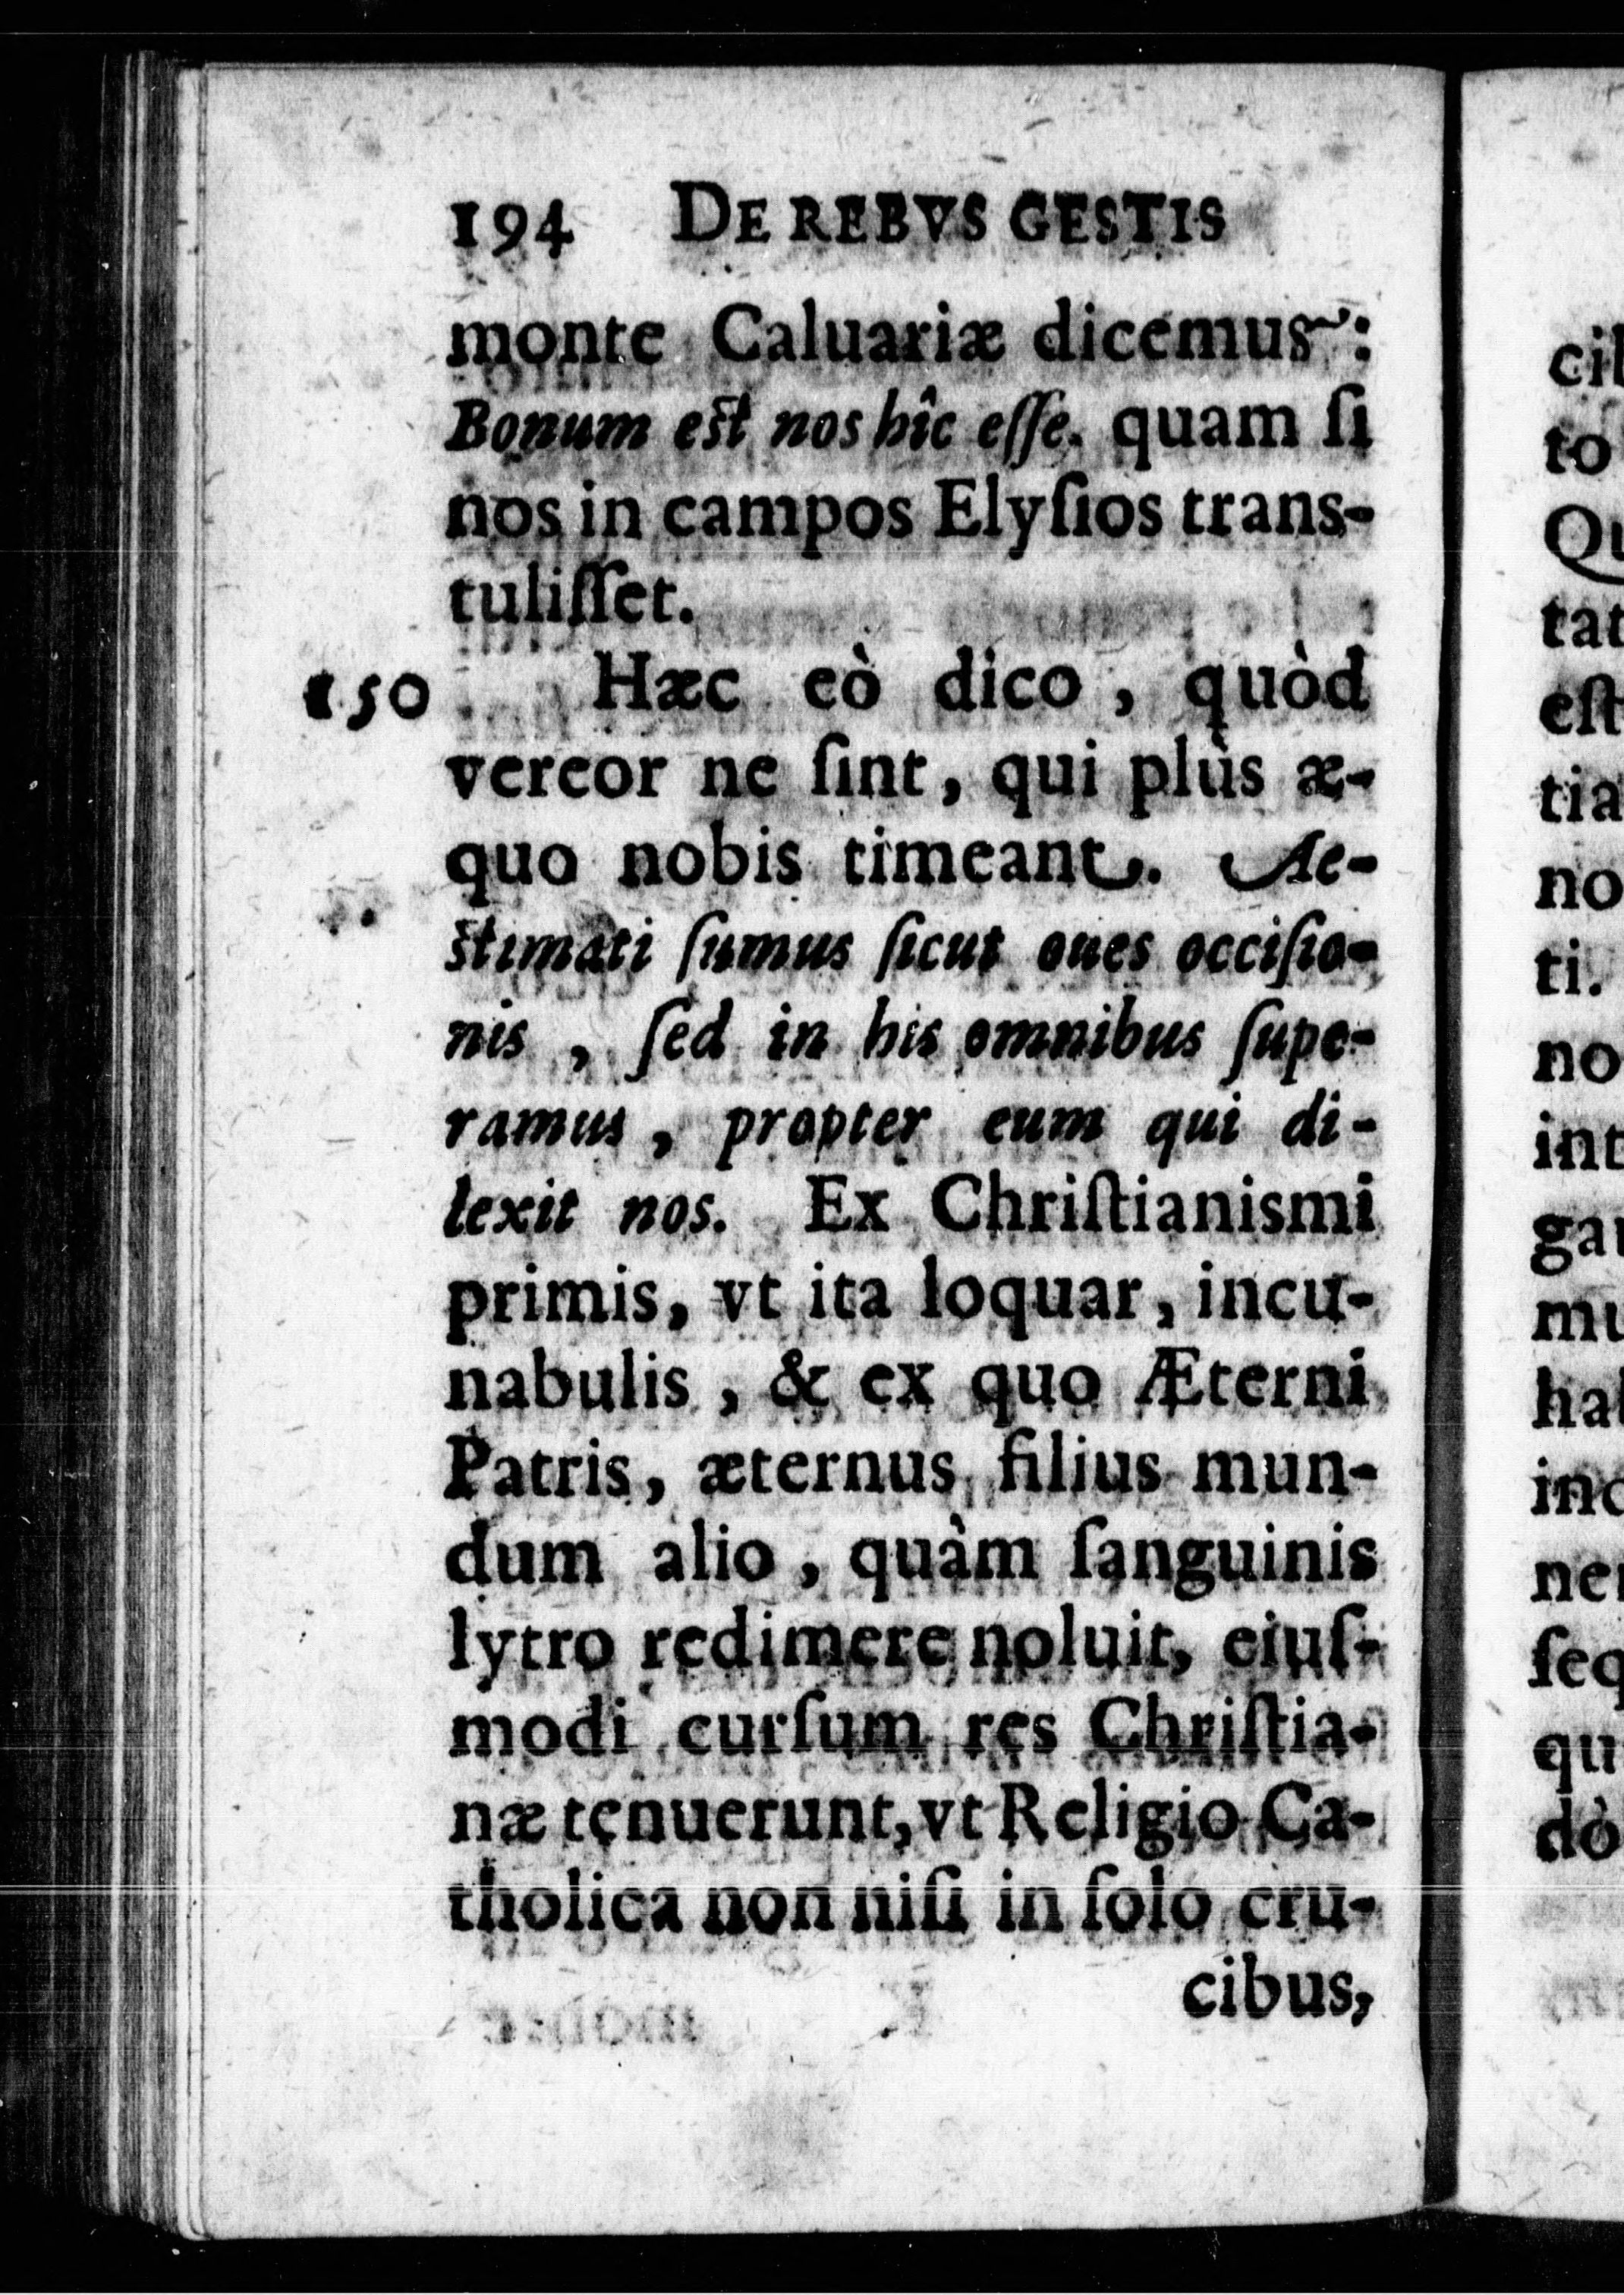 194 DE REBVS GESTIS
monte Caluariæ dicemus:
Bonum est nos hîc eſſe. quam ſi
nos in campos Elyſios trans-
tuliſſet.
150 Hæc eò dico, quòd
vereor ne ſint, qui plùs æ-
quo nobis timeant. Ae-
stimati ſumus ſicut oues occiſio-
nis, ſed in his omnibus ſupe-
ramus, propter eum qui di-
lexit nos. Ex Chriſtianismi
primis, vt ita loquar, incu-
nabulis, & ex quo Æterni
Patris, æternus filius mun-
dum alio, quàm ſanguinis
lytro redimere noluit, eiuſ-
modi curſum res Chriſtia-
næ tenuerunt, vt Religio Ca-
tholica non niſi in ſolo cru-
cibus,
cil
to
Qu
tat
eſt
tia
no
ti.
no
int
gau
mu
hal
inc
ner
ſeq
qu
dò